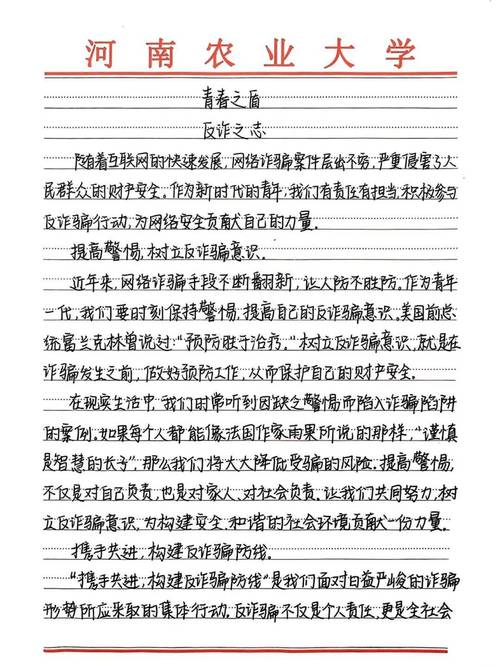 河南农业大学
青春之盾
反诈之志
随着互联网的快速发展,网络诈骗案件层出不穷,严重侵害了人
民群众的财产安全。作为新时代的青年,我们有责任有担当,积极参与
反诈骗行动,为网络安全贡献自己的力量。
提高警惕,树立反诈骗意识。
近年来,网络诈骗手段不断翻新,让人防不胜防。作为青年
一代,我们要时刻保持警惕,提高自己的反诈骗意识。美国前总
统富兰克林曾说过:“预防胜于治疗。”树立反诈骗意识,就是在
诈骗发生之前,做好预防工作,从而保护自己的财产安全。
在现实生活中,我们时常听到因缺乏警惕而陷入诈骗陷阱
的案例。如果每个人都能像法国作家雨果所说的那样,“谨慎
是智慧的长子”,那么我们将大大降低受骗的风险。提高警惕,
不仅是对自己负责,也是对家人、对社会负责。让我们共同努力,树
立反诈骗意识,为构建安全、和谐的社会环境贡献一份力量。
携手共进,构建反诈骗防线。
“携手共进,构建反诈骗防线”是我们面对日益严峻的诈骗
形势所应采取的集体行动。反诈骗不仅是个人责任,更是全社会